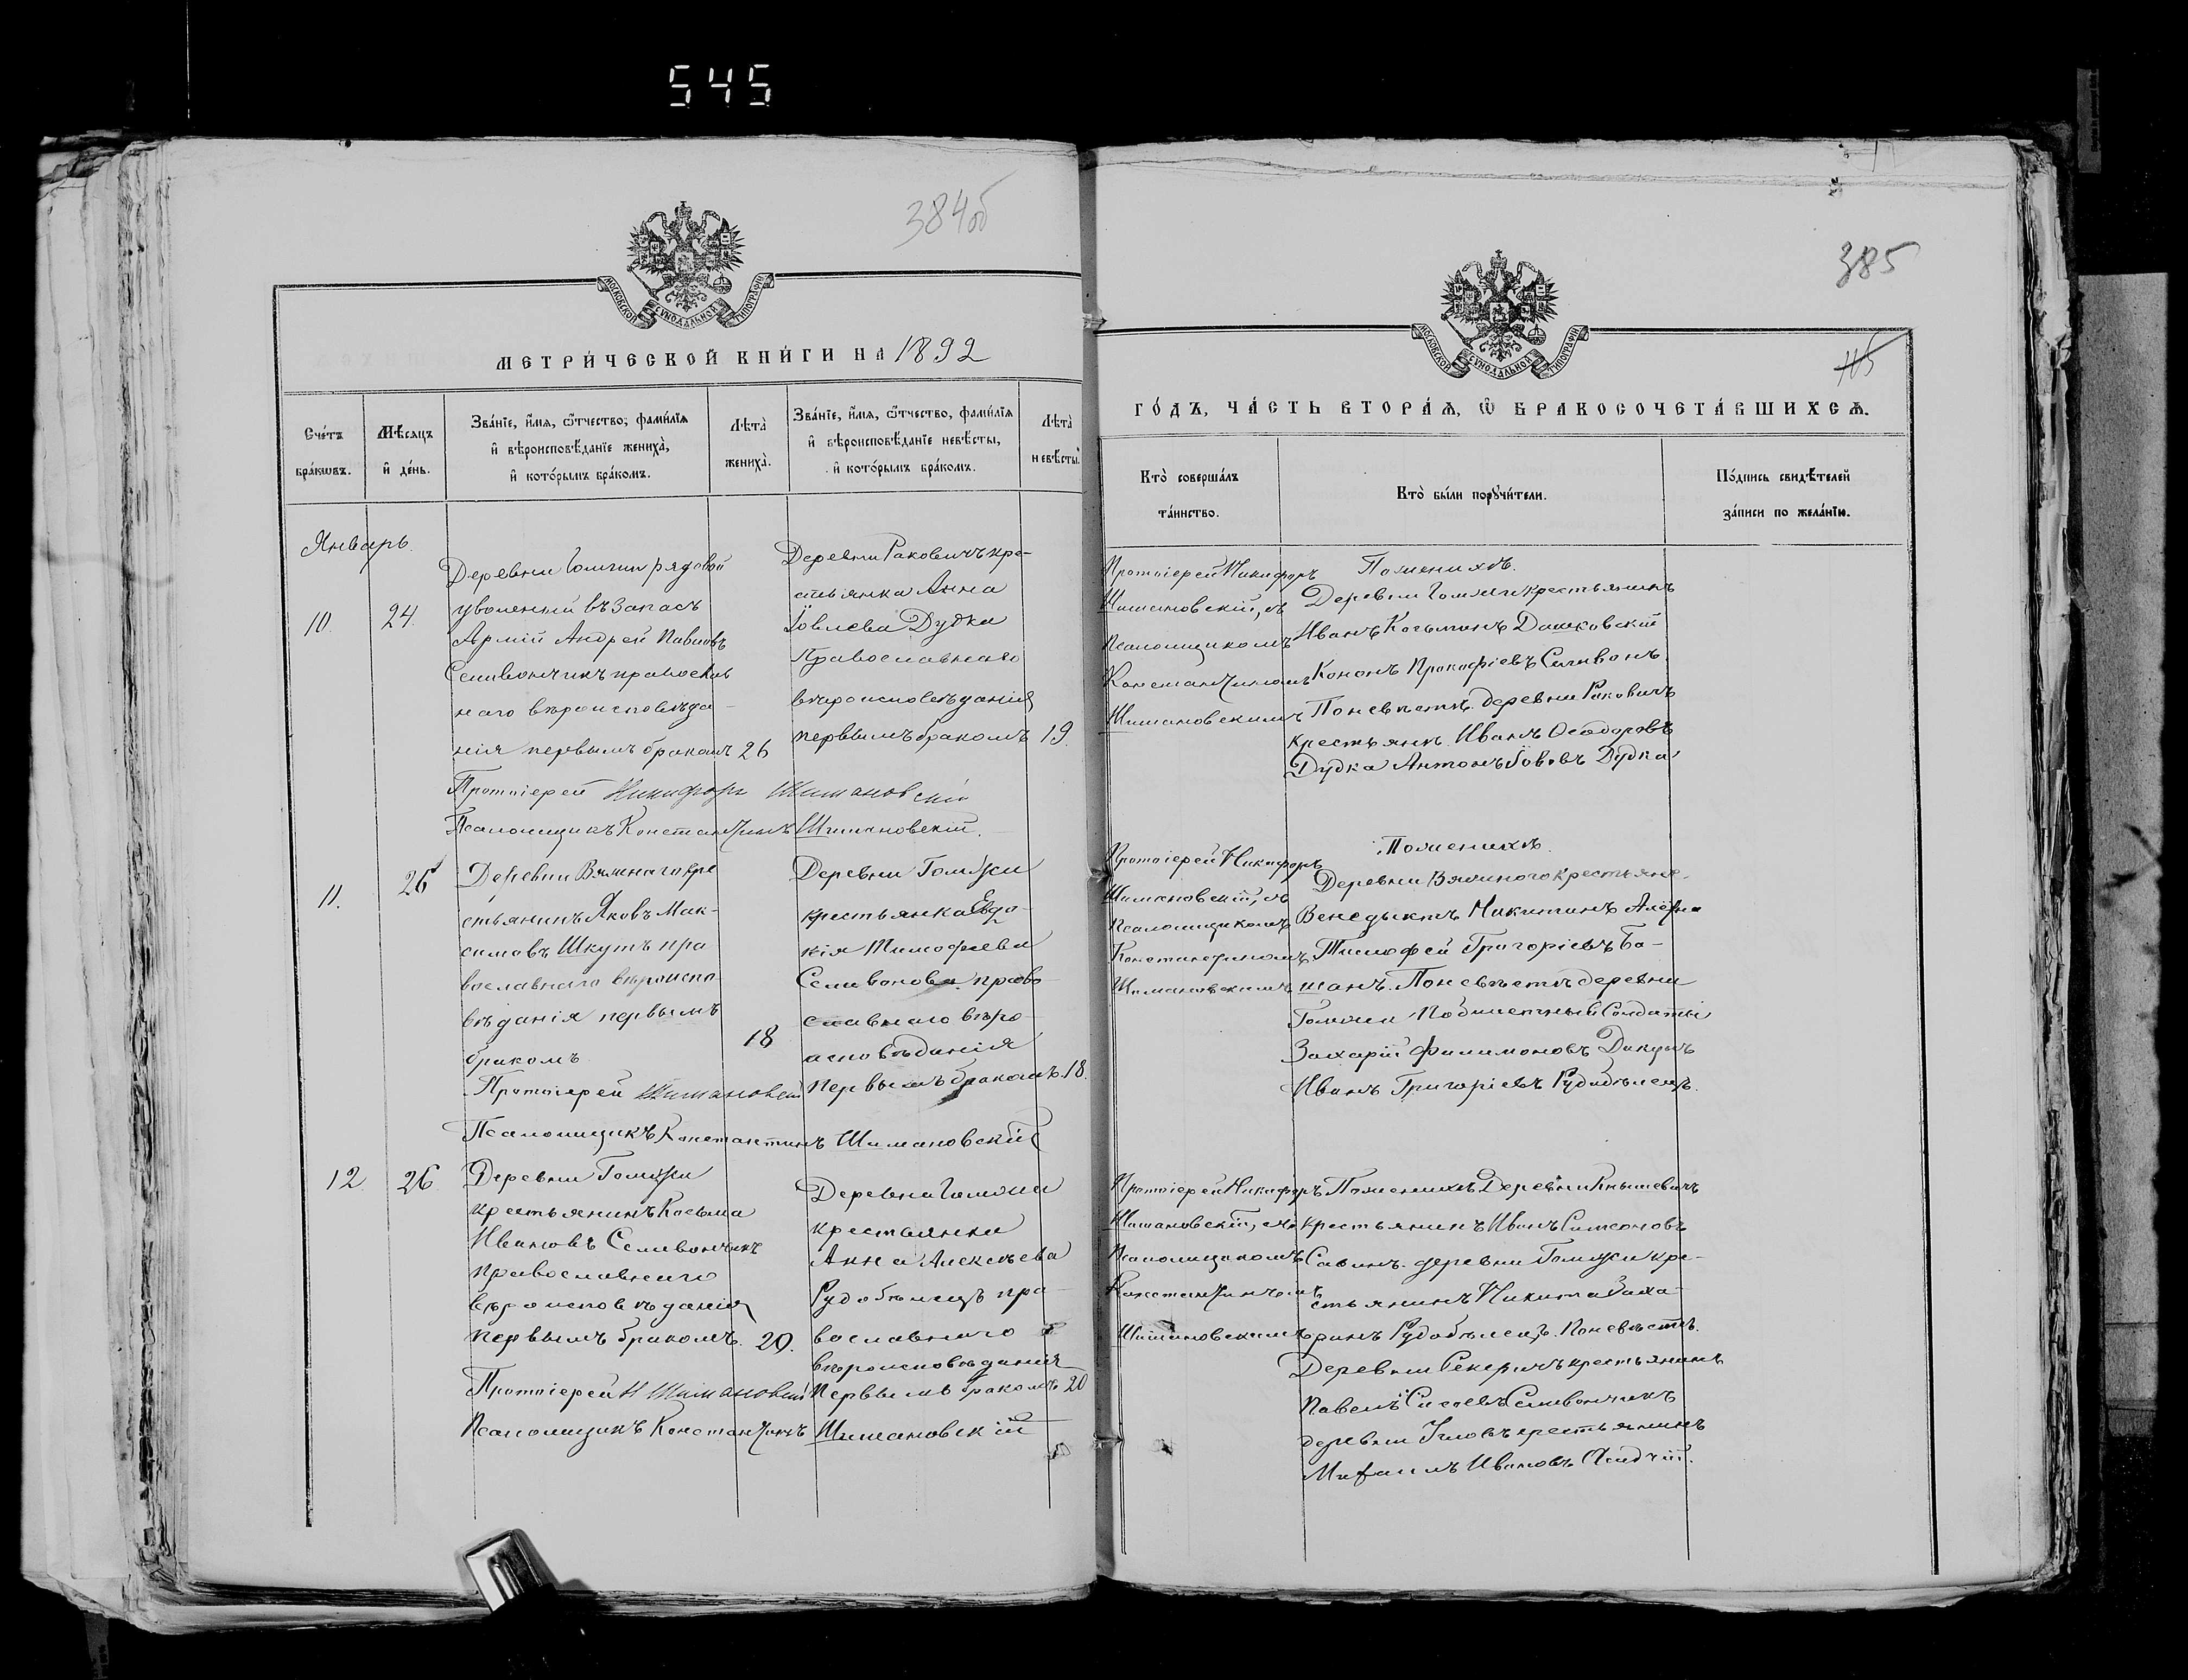 545
384об
МОСКОВСКОЙ СѴНОДАЛЬНОЙ ТИПОГРАФІИ
МЕТРИ́ЧЕСКОЙ КНИ́ГИ НА 1892
Сче́тъ бра́кѡвъ.
Мѣ́сяцъ и҆ де́нь.
Зва́нїе, и҆́мѧ, ѻ҆́тчество, фами́лїѧ
и҆ вѣроисповѣ́данїе жениха̀,
и҆ кото́рымъ бра́комъ.
Лѣта̀ жениха̀.
Зва́нїе, и҆́мѧ, ѻ҆́тчество, фами́лїѧ
и҆ вѣроисповѣ́данїе невѣ́сты,
и҆ кото́рымъ бра́комъ.
Лѣта̀ невѣ́сты.
Январь.
10.
24.
Деревни рядовой
уволенный въ запасъ
Армій Андрей Павловъ
Селивончикъ православ
наго вѣроисповѣда-
нія первымъ бракомъ 26
Деревни Раковичъ кре-
стьянка Анна
Іовлева Дудка
Православнаго
вѣроисповѣданія
первымъ бракомъ 19.
Протоіерей Никифоръ Шимановскій
Псаломщикъ Константинъ Шимановскій.
11.
26
Деревни кре
стьянинъ Яковъ Мак-
симовъ Шкутъ пра
вославнаго вѣроиспо
вѣданія первымъ
бракомъ
18
Деревни Гомжи
крестьянка Евдо-
кія Тимофеева
Селивонова право-
славнаго вѣро-
исповѣданія
первымъ бракомъ. 18.
Протоіерей Шимановскій
Псаломщикъ Константинъ Шимановскій
12
26
Деревни Гомжи
крестьянинъ Косьма
Ивановъ Селивончикъ
православнаго
вѣроисповѣданія
первымъ бракомъ. 20.
Деревни Гомжи
крестьянка
Анна Алексѣева
Рудобѣлецъ пра-
вославнаго
вѣроисповѣданія
первымъ бракомъ 20
Протоіерей Н Шимановскій
Псаломщикъ Константинъ Шимановскій
385
МОСКОВСКОЙ СѴНОДАЛЬНОЙ ТИПОГРАФІИ
ГО́ДЪ, ЧА́СТЬ ВТОРА́Ѧ, Ѽ БРАКОСОЧЕТА́ВШИХСѦ.
Кто̀ соверша́лъ
та́инство.
Кто̀ бы́ли порꙋчи́тели.
По́дпись свидѣ́телей
за́писи по жела́нїю.
Протоіерей Никифоръ
Шимановскій, съ
Псаломщикомъ
Константиномъ
Шимановскимъ
По женихѣ.
Деревни Гомжи крестьянинъ
Иванъ Козьминъ Дашковскій
Кононъ Прокофіевъ Селивонъ.
По невѣстѣ. деревни Раковичъ
крестьяне. Иванъ Ѳеодоровъ
Дудка Антонъ Іововъ Дудка
Протоіерей Никифоръ
Шимановскій, съ
Псаломщикомъ
Константиномъ
Шимановскимъ
По женихѣ.
Деревни крестьяне.
Венедыктъ Никитинъ
Тимофей Григоріевъ Ба-
шанъ. По невѣстѣ деревни
Гомжи Солдаты
Захарій Филимоновъ
Иванъ Григоріевъ Рудобѣлецъ.
Протоіерей Никифоръ
Шимановскій, съ
Псаломщикомъ
Константиномъ
Шимановскимъ
По женихѣ Деревни Кнышевичъ
крестьянинъ Иванъ Симеоновъ
Савинъ. деревни Гомжи кре-
стьянинъ Никита Заха-
ринъ Рудобѣлецъ. По невѣстѣ.
Деревни крестьянинъ
Павелъ Сисоевъ Селивончикъ
деревни крестьянинъ
Михаилъ Ивановъ